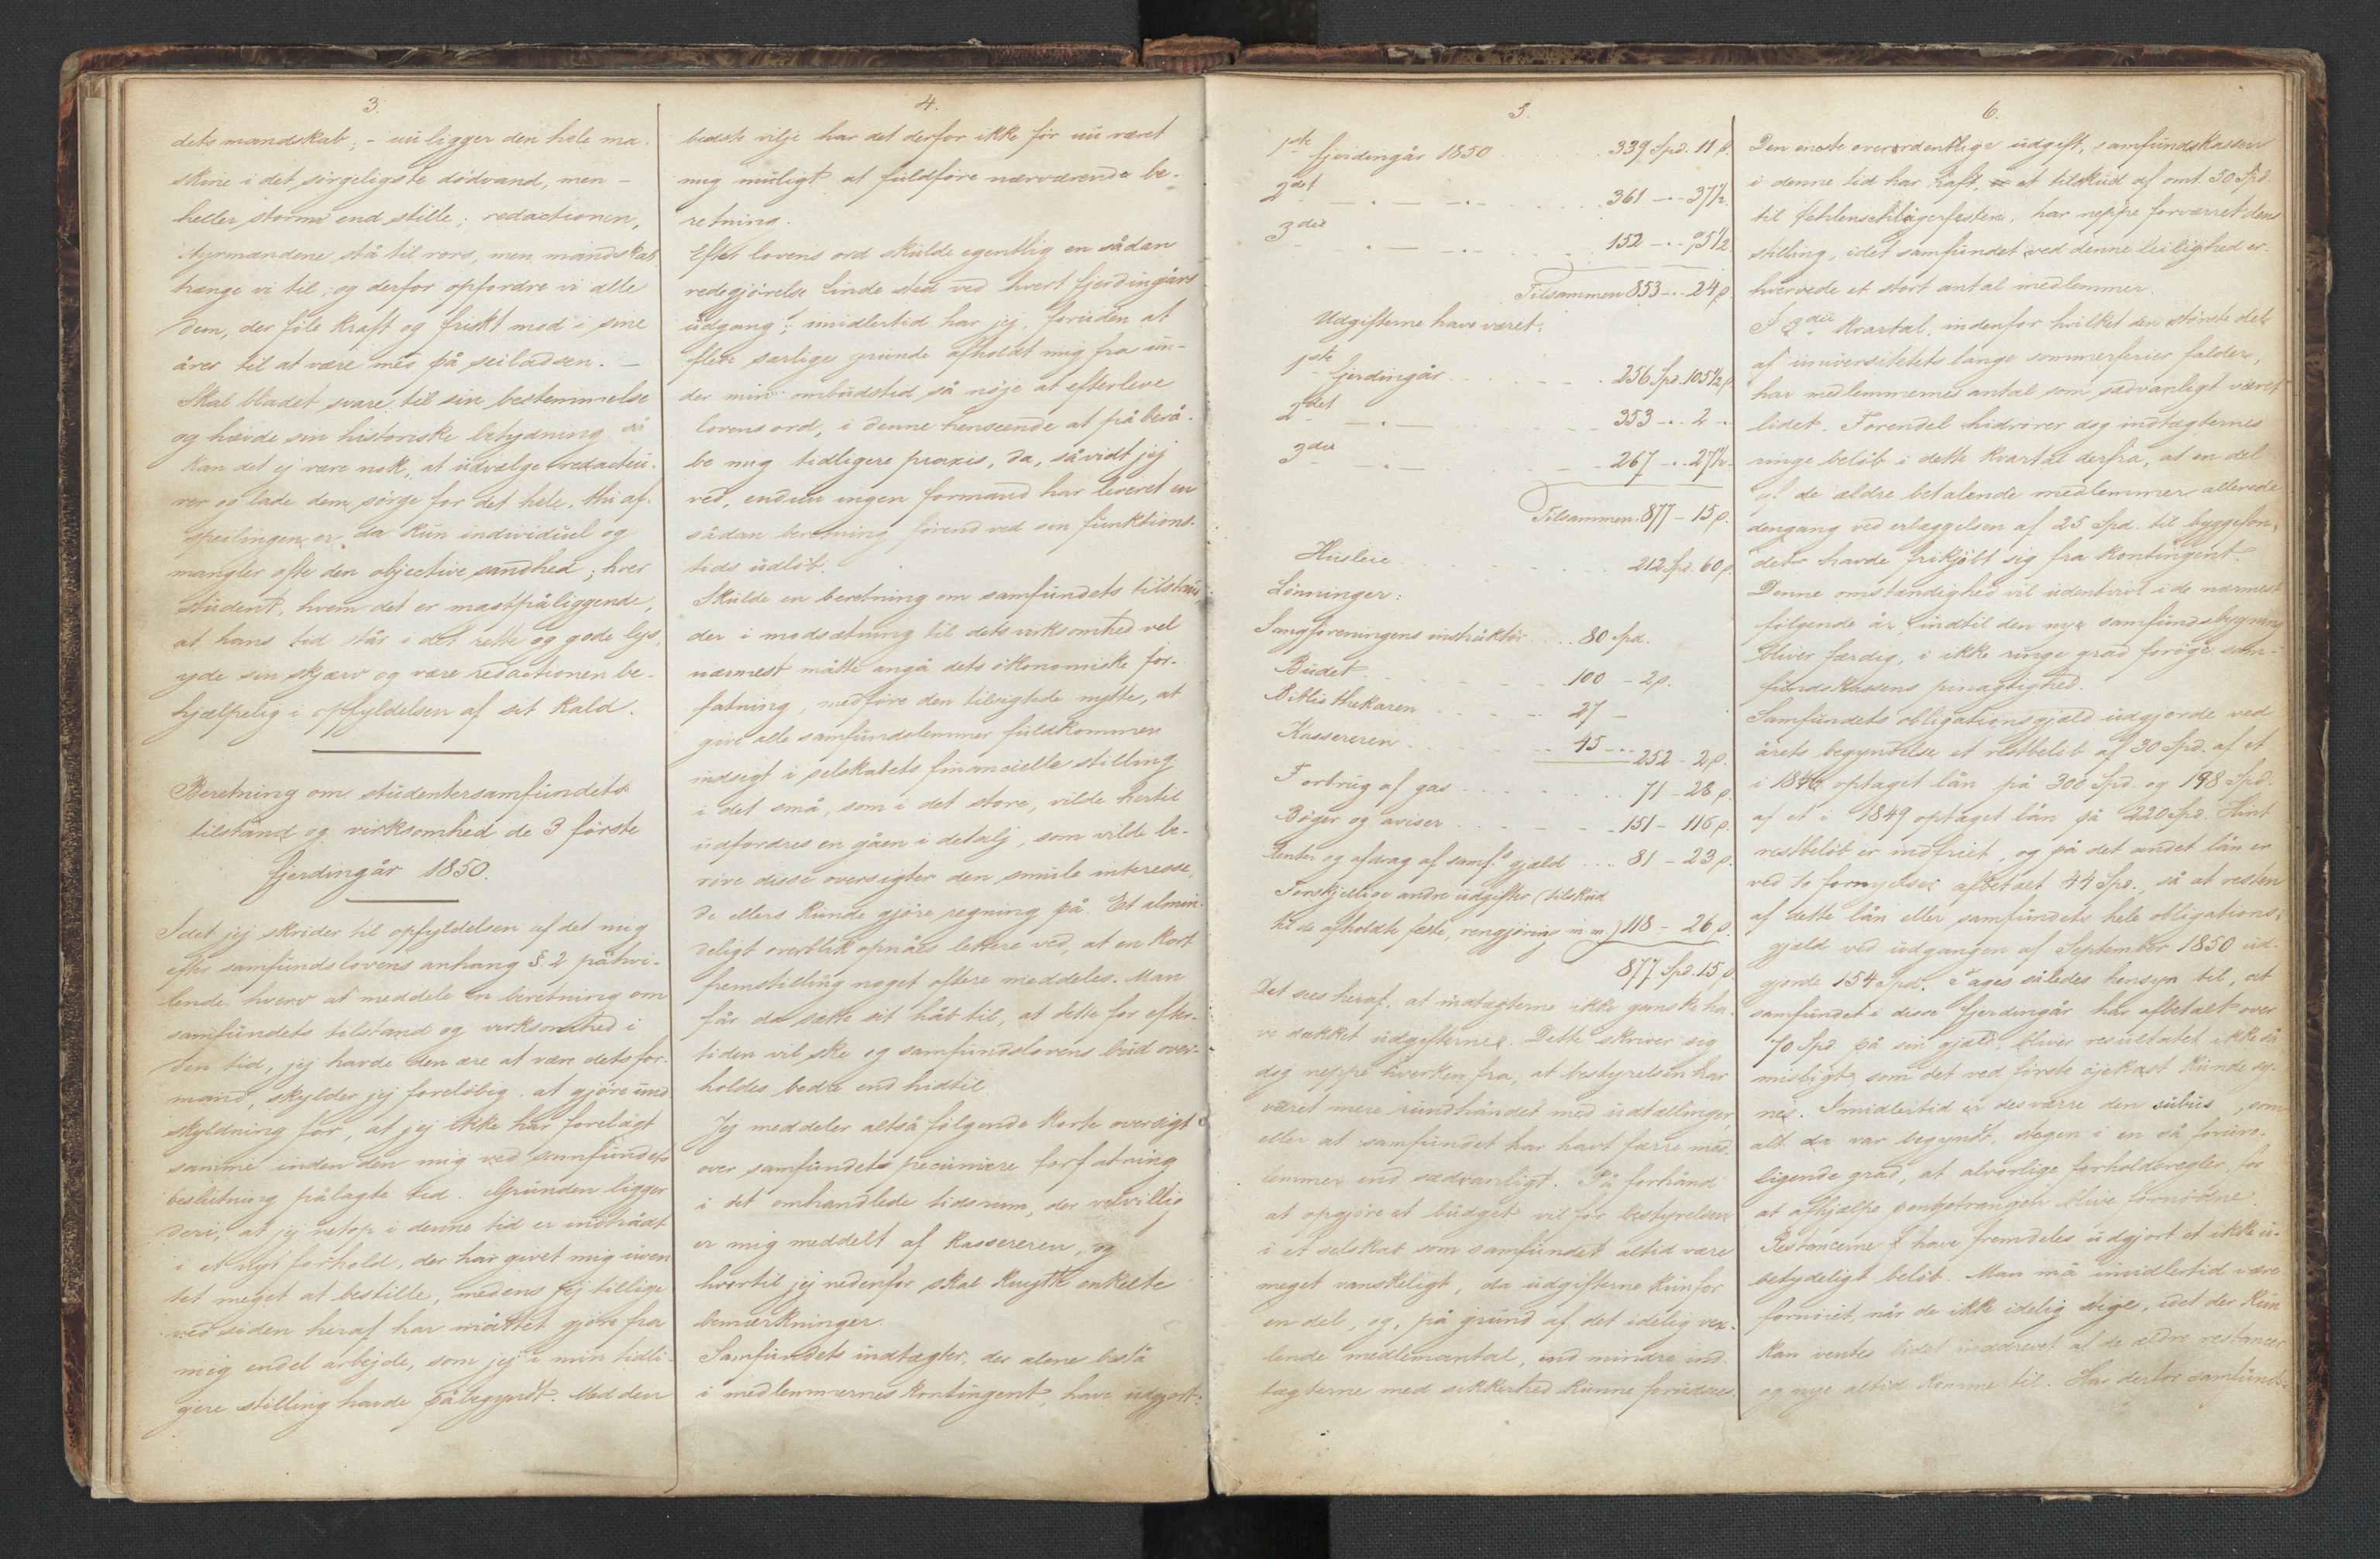 3.
dets mandskab; - nu ligger den hele ma-
skine i det sørgeligste dødvand, men -
heller storm end stille; redactionen,
styrmændene stå til rors, men mandskab
trænge vi til, og derfor opfordre vi alle
dem, der føle kraft og friskt mod i sine
årer til at være med på seiladsen. -
Skal bladet svare til sin bestemmelse
og hævde sin historiske betydning, så
kan det ej være nok, at udvælge redacteu-
rer og lade dem sørge for det hele, thi af-
speilingen er da kun individuel og
mangler ofte den objective sandhed; hver
student, hvem det er mastpåliggende,
at hans tid står i det rette og gode lys,
yde sin skjærv og være redactionen be-
hjælpelig i opfyldelsen af sit kald.
Beretning om studentersamfundets
tilstand og virksomhed de 3 første
fjerdingår 1850.
Idet jeg skrider til opfyldelsen af det mig
efter samfundslovens anhang §. 2 påhvi-
lende hverv at meddele en beretning om
samfundets tilstand og virksomhed i
den tid, jeg havde den ære at være dets for-
mand, skylder jeg foreløbig at gjøre und-
skyldning for, at jeg ikke har forelagt
samme inden den mig ved samfundets
beslutning pålagte tid. Grunden ligger
deri, at jeg netop i denne tid er indtrådt
i et nyt forhold, der har givet mig uven-
tet meget at bestille, medens jeg tillige
ved siden heraf har måttet gjøre fra
mig endel arbejde, som jeg i min tidli-
gere stilling havde påbegyndt. Med den
4.
bedste vilje har det derfor ikke før nu været
mig muligt at fuldføre nærværende be-
retning.
Efter lovens ord skulde egentlig en sådan
redegjørelse finde sted ved hvert fjerdingårs
udgang; imidlertid har jeg, foruden at
flere særlige grunde afholdt mig fra un-
der min ombudstid så nøje at efterleve
lovens ord, i denne henseende at påberå-
be mig tidligere praxis, da, såvidt jeg
ved, endnu ingen formand har leveret en
sådan beretning førend ved sin funktions-
tids udløb.
Skulde en beretning om samfundets tilstand,
der i modsætning til dets virksomhed vel
nærmest måtte angå dets økonomiske for-
fatning, medføre den tilsigtede nytte, at
give alle samfundslemmer fuldkommen
indsigt i selskabets financielle stilling
i det små, som i det store, vilde hertil
udfordres en gåen i detalj, som vilde be-
røve disse oversigter den smule interesse,
de ellers kunde gjøre regning på. Et almin-
deligt overblik opnåes lettere ved, at en kort
fremstilling noget oftere meddeles. Man
får da sætte sit håb til, at dette for efter-
tiden vil ske og samfundslovens bud over-
holdes bedre end hidtil.
Jeg meddeler altså følgende korte oversigt
over samfundets pecuniære forfatning
i det omhandlede tidsrum, der velvillig
er mig meddelt af kassereren, og
hvortil jeg nedenfor skal knytte enkelte
bemærkninger.
Samfundets indtægter, der alene bestå
i medlemmernes kontingent, have udgjort:
5.
1ste fjerdingår 1850 . . . . 339 Spd. 11 β.
2det - . - - . - . . . . 361 - . - 37½
3die - . - - . - . . . 152 - . - 95½
Tilsammen 853 - . - 24 β.
Udgifterne have været:
1ste fjerdingår . . . . . 256 Spd. 105½ β
2det - . - . . . 353 - . - 2 -
3die - . - . . . 267 - . - 27½ -
Tilsammen 877 - 15 β.
Husleie . . . . . . . 212 Spd. 60 β
Lønninger:
Sangforeningens instruktør . . . 80 Spd.
Budet . . . . . . 100 - 2 β.
Bibliothekaren . . . . 27 -
Kassereren . . . . . 45 - . - 252 - 2 β.
Forbrug af gas . . . . . . . 71 - 28 β.
Bøger og aviser . . . . . . 151 - 116 β.
Renter og afdrag af samf.s gjæld . . . . 81 - 23 β.
Forskjellige andre udgifter (tilskud
til de afholdte feste, rengjøring m. m.) 118 - 26 β.
877 Spd. 15 β
Det sees heraf, at indtægterne ikke ganske ha-
ve dækket udgifterne. Dette skriver sig
dog neppe hverken fra, at bestyrelsen har
været mere rundhåndet med udtællinger,
eller at samfundet har havt færre med-
lemmer end sædvanligt. På forhånd
at opgjøre et budget vil for bestyrelsen
i et selskab som samfundet altid være
meget vanskeligt, da udgifterne kun for
en del, og, på grund af det idelig vex-
lende medlemantal, end mindre ind-
tægterne med sikkerhed kunne forudsees.
6.
Den eneste overordentlige udgift, samfundskassen
i denne tid har havt, et tilskud af omt. 50 Spd.
til Øehlenschlägerfesten, har neppe forværret dens
stilling, idet samfundet ved denne leilighed er-
hvervede et stort antal medlemmer.
I 3die kvartal, indenfor hvilket den største del
af universitetets lange sommerferier falder,
har medlemmernes antal som sædvanligt været
lidet. Forendel hidrører dog indtægternes
ringe beløb i dette kvartal derfra, at en del
af de ældre betalende medlemmer allerede
dengang ved erlæggelsen af 25 Spd. til byggefon-
det havde frikjøbt sig fra kontingent.
Denne omstændighed vil udentvivl i de nærmest
følgende år, indtil den nye samfundsbygning
bliver færdig, i ikke ringe grad forøge sam-
fundskassens pinagtighed.
Samfundets obligationsgjæld udgjorde ved
årets begyndelse et restbeløb af 30 Spd. af et
i 1846 optaget lån på 300 Spd. og 198 Spd.
af et i 1849 optaget lån på 220 Spd. Hint
restbeløb er indfriet, og på det andet lån er
ved to fornyelser afbetalt 44 Spd., så at resten
af dette lån eller samfundets hele obligations-
gjæld ved udgangen af September 1850 ud-
gjorde 154 Spd. Tages således hensyn til, at
samfundet i disse fjerdingår har afbetalt over
70 Spd. på sin gjæld, bliver resultatet ikke så
misligt, som det ved første øjekast kunde sy-
nes. Imidlertid er desværre den subus, som
alt da var begyndt, stegen i en så foruro-
ligende grad, at alvorlige forholdsregler for
at afhjælpe pengetrangen blive fornødne.
Restancerne have fremdeles udgjort et ikke u-
betydeligt beløb. Man må imidlertid være
fornøiet, når de ikke idelig stige, idet der kun
kan ventes lidet inddrevet af de ældre restancer
og nye altid komme til. Har derfor samfunds-